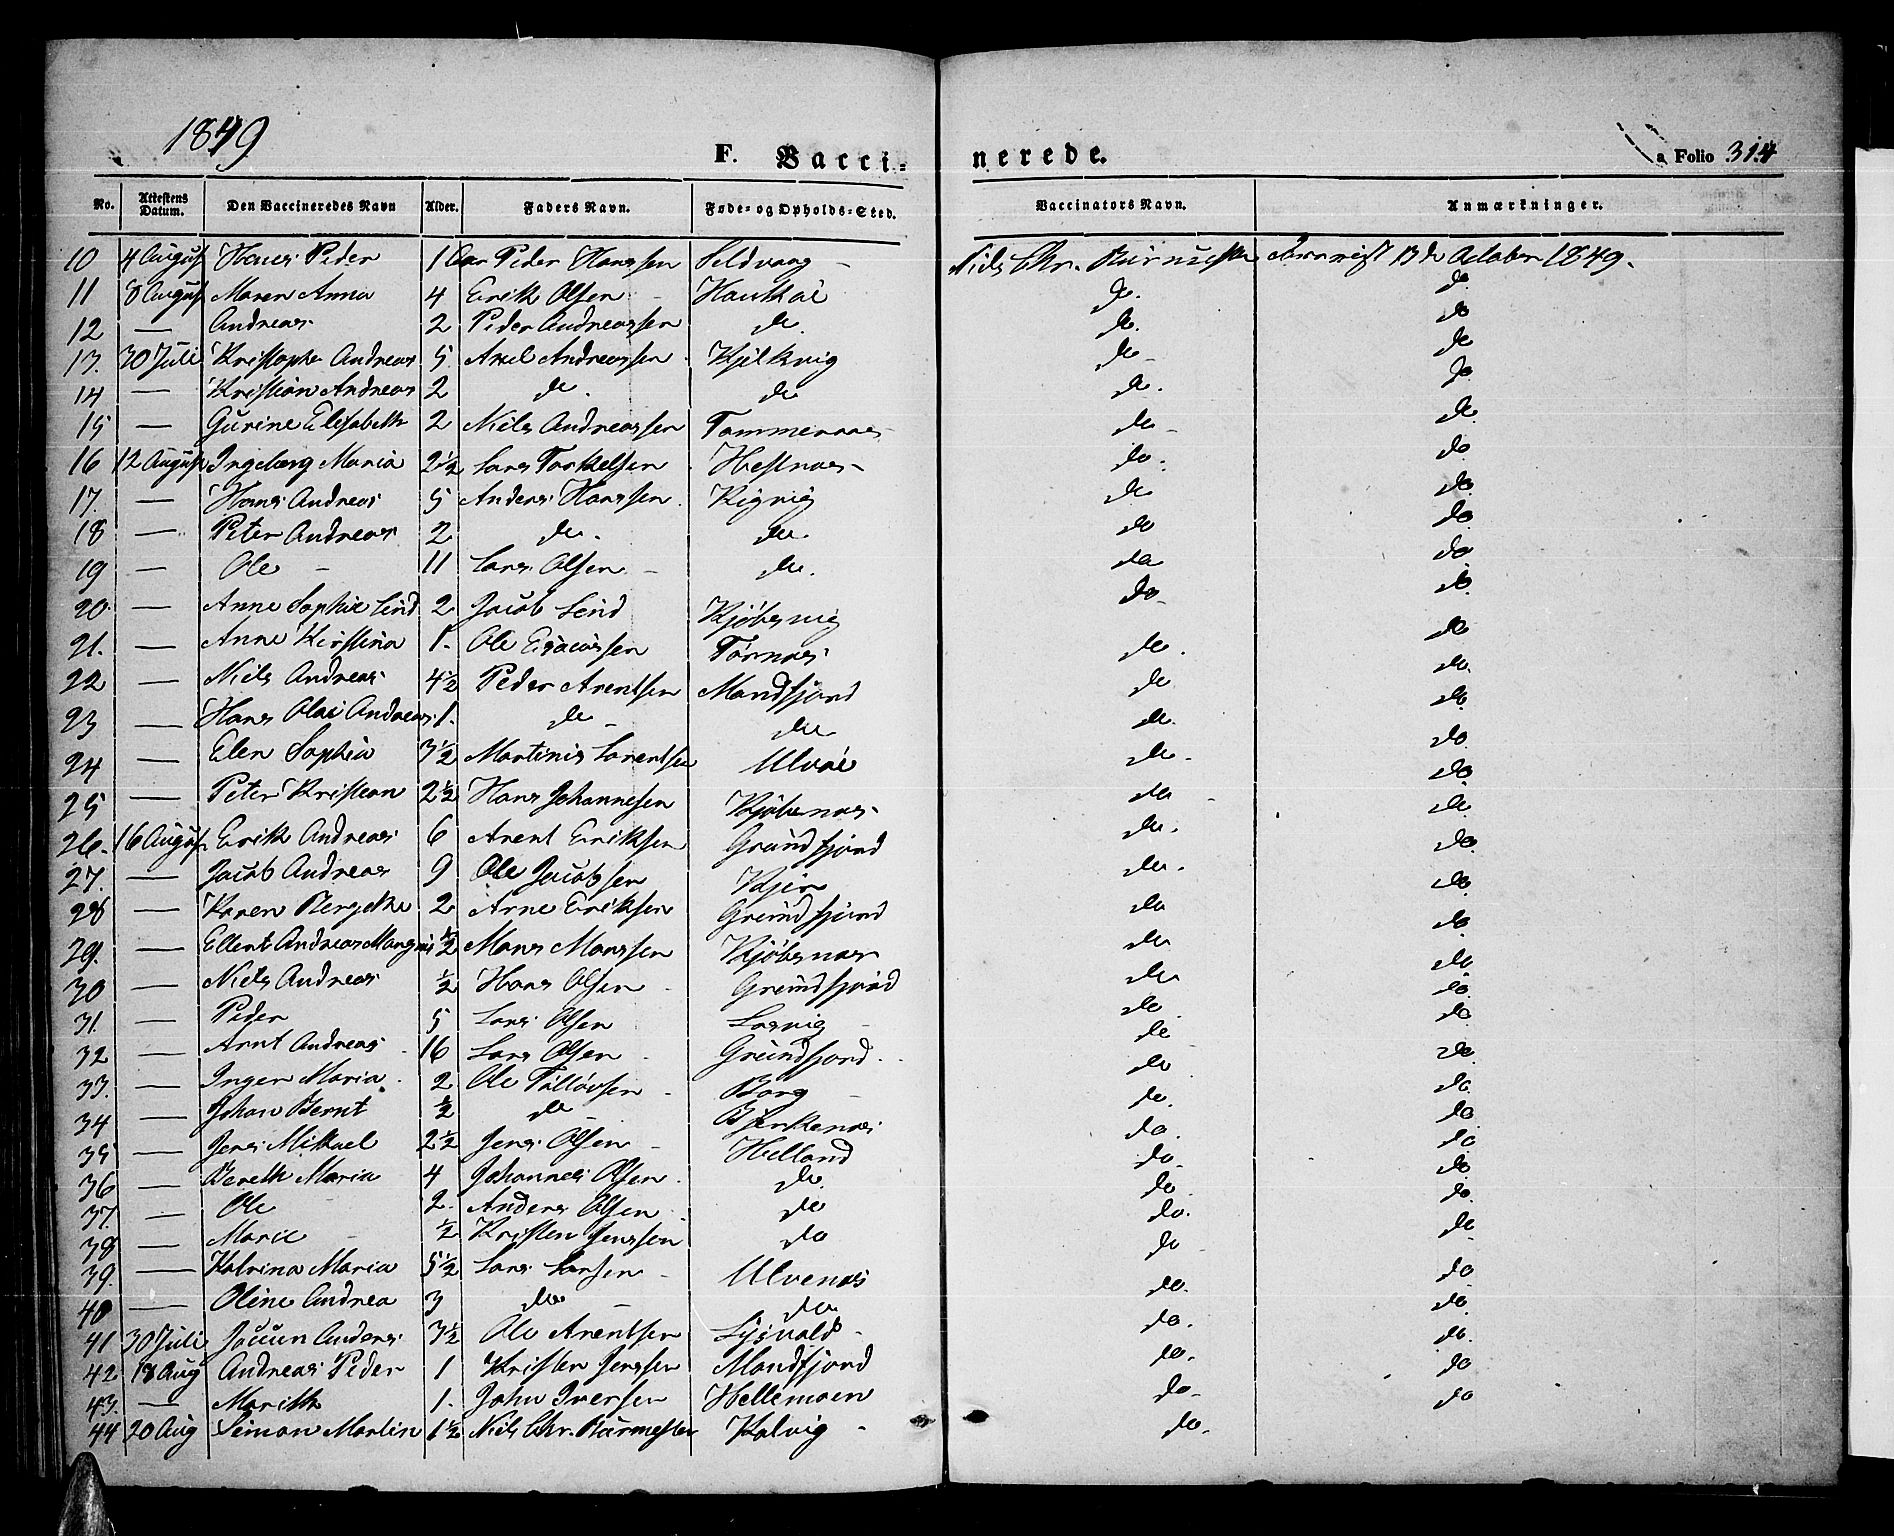 1849
F. Vaccinerede.
a Folio 314
No. Attestens Datum. Den Vaccineredes Navn Alder. Faders Navn. Føde- og Opholds-Sted. Vaccinators Navn. Anmærkninger.
10 4 August Hans Peder 1 Peder Hanssen Niels Chr. 1849.
11 8 August Maren Anna 4 Erik Olsen do. do
12 — Andreas 2 Peder Andreassen do. do. do
13. 30 Juli Andreas 5. Axel Andreassen Kjelkvig do do
14 — Kristian Andreas 2 do. do do. do
15 — Gurine Elisabeth 2 Niels Andreassen do do
16 12 August Ingeborg Maria 2½ Lars Torkelsen Hestnæs do. do
17. — Hans Andreas 5 Anders Hanssen do do
18 — Peter Andreas 2 do. do. do do
19 — Ole 11 Lars Olsen do. do do
20 — Anne Sophie Lind 2 Jacob Lind Kjøbsvig do do
21. — Anne Kirstina 1. Ole do. do
22 — Niels Andreas 4½ Peder Arentsen Mandfjord do do
23 — Hans Olai Andreas 1. do do do. do
24 — Elen Sophia 3½ Martinis Lorentsen do. do
25 — Peter Kristian 2½ Hans Johannesen Kjøbsnæs do do
26. 16 August Erik Andreas 6 Arent Eriksen Grundfjord do. do
27. — Jacob Andreas 9 Ole Jacobsen do. do
28 — Karen Bergithe 2 Arne Eriksen Grundfjord do do
29. — Ellert Andreas ½ Mons Monssen Kjøbsnæs do do
30 — Niels Andreas ½ Hans Olsen Grundfjord do do
31. — Peder 5 Lars Olsen Losvig do do
32 — Arnt Andreas 16 Lars Olsen Grundfjord do do
33. — Inger Maria 2 Ole Borg do do
34 — Johan Bernt ½ do do. do
35 — Jens Mikael 2½ Jens Olsen Helland do. do
36 — Bereth Maria 4 Johannes Olsen do. do. do
37. — Ole 2. Anders Olsen do do do
38 — Marie ½ Kristen Jenssen do do. do
39. — Katrina Maria 5½ Lars Larsen Ulvenæs do do
40 — Oline Andrea 3 do do do. do
41 30 Juli Anders 3½ Ole Arentsen do. do
42 18 Aug Andreas Peder 1 Kristen Jenssen Mandfjord do. do
43. — Marith 1. John Iversen Hellemoen do. do
44 20 Aug Simon Martin 1½ Niels Chr. Burmester Kalvig do.